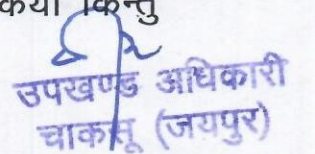 किन्तु
उपखण्ड अधिकारी
चाकसू (जयपुर)